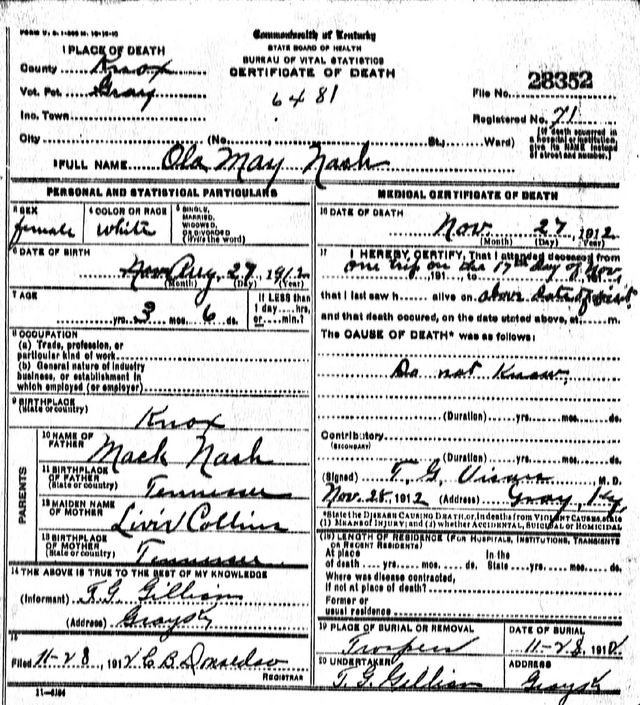 FORM V. S. 1-
Commonwealth of Kentucky
STATE BOARD OF HEALTH
BUREAU OF VITAL STATISTICS
CERTIFICATE OF DEATH
1 PLACE OF DEATH
County Knox
Vot. Pct. Gray
Inc. Town
6481
File No. 28352
Registered No. 71
City (No. St.; Ward)
(If death occurred in a hospital or institution, give its NAME instead of street and number.)
2 FULL NAME Ola May Nash
PERSONAL AND STATISTICAL PARTICULARS
3 SEX female
4 COLOR OR RACE white
5 SINGLE, MARRIED, WIDOWED, OR DIVORCED (Write the word)
6 DATE OF BIRTH
Aug, 27, 1912
(Month) (Day) (Year)
7 AGE
yrs. 3 mos. 6 ds.
If LESS than 1 day....hrs, or....min.?
8 OCCUPATION
(a) Trade, profession, or
particular kind of work
(b) General nature of industry
business, or establishment in
which employed (or employer)
9 BIRTHPLACE
(State or country) Knox
PARENTS
10 NAME OF FATHER Mack Nash
11 BIRTHPLACE OF FATHER
(State or country) Tennessee
12 MAIDEN NAME OF MOTHER Collins
13 BIRTHPLACE OF MOTHER
(State or country) Tennessee
14 THE ABOVE IS TRUE TO THE BEST OF MY KNOWLEDGE
(Informant)
(Address)
15
Filed 11-28, 1912 C B Donaldson
REGISTRAR
MEDICAL CERTIFICATE OF DEATH
16 DATE OF DEATH
Nov. 27 1912
(Month) (Day) (Year)
17 I HEREBY CERTIFY, That I attended deceased from
one trip on the 17th day of Nov,
191 , to 191 ,
that I last saw h alive on above date of visit
and that death occured, on the date stated above, at m.
The CAUSE OF DEATH* was as follows:
Do not Know,
(Duration) yrs. mos. ds.
Contributory
(SECONDARY)
(Duration) yrs. mos. ds.
(Signed) T. G. M. D.
Nov. 28 1912 (Address) Gray, Ky.
*State the DISEASE CAUSING DEATH, or, in deaths from VIOLENT CAUSES, state
(1) MEANS OF INJURY; and (2) whether ACCIDENTAL, SUICIDAL or HOMICIDAL
(18) LENGTH OF RESIDENCE (FOR HOSPITALS, INSTITUTIONS, TRANSIENTS
OR RECENT RESIDENTS)
At place of death yrs. mos. ds. In the State yrs. mos. ds.
Where was disease contracted,
If not at place of death?
Former or
usual residence
19 PLACE OF BURIAL OR REMOVAL
DATE OF BURIAL
11-28, 191
20 UNDERTAKER
ADDRESS